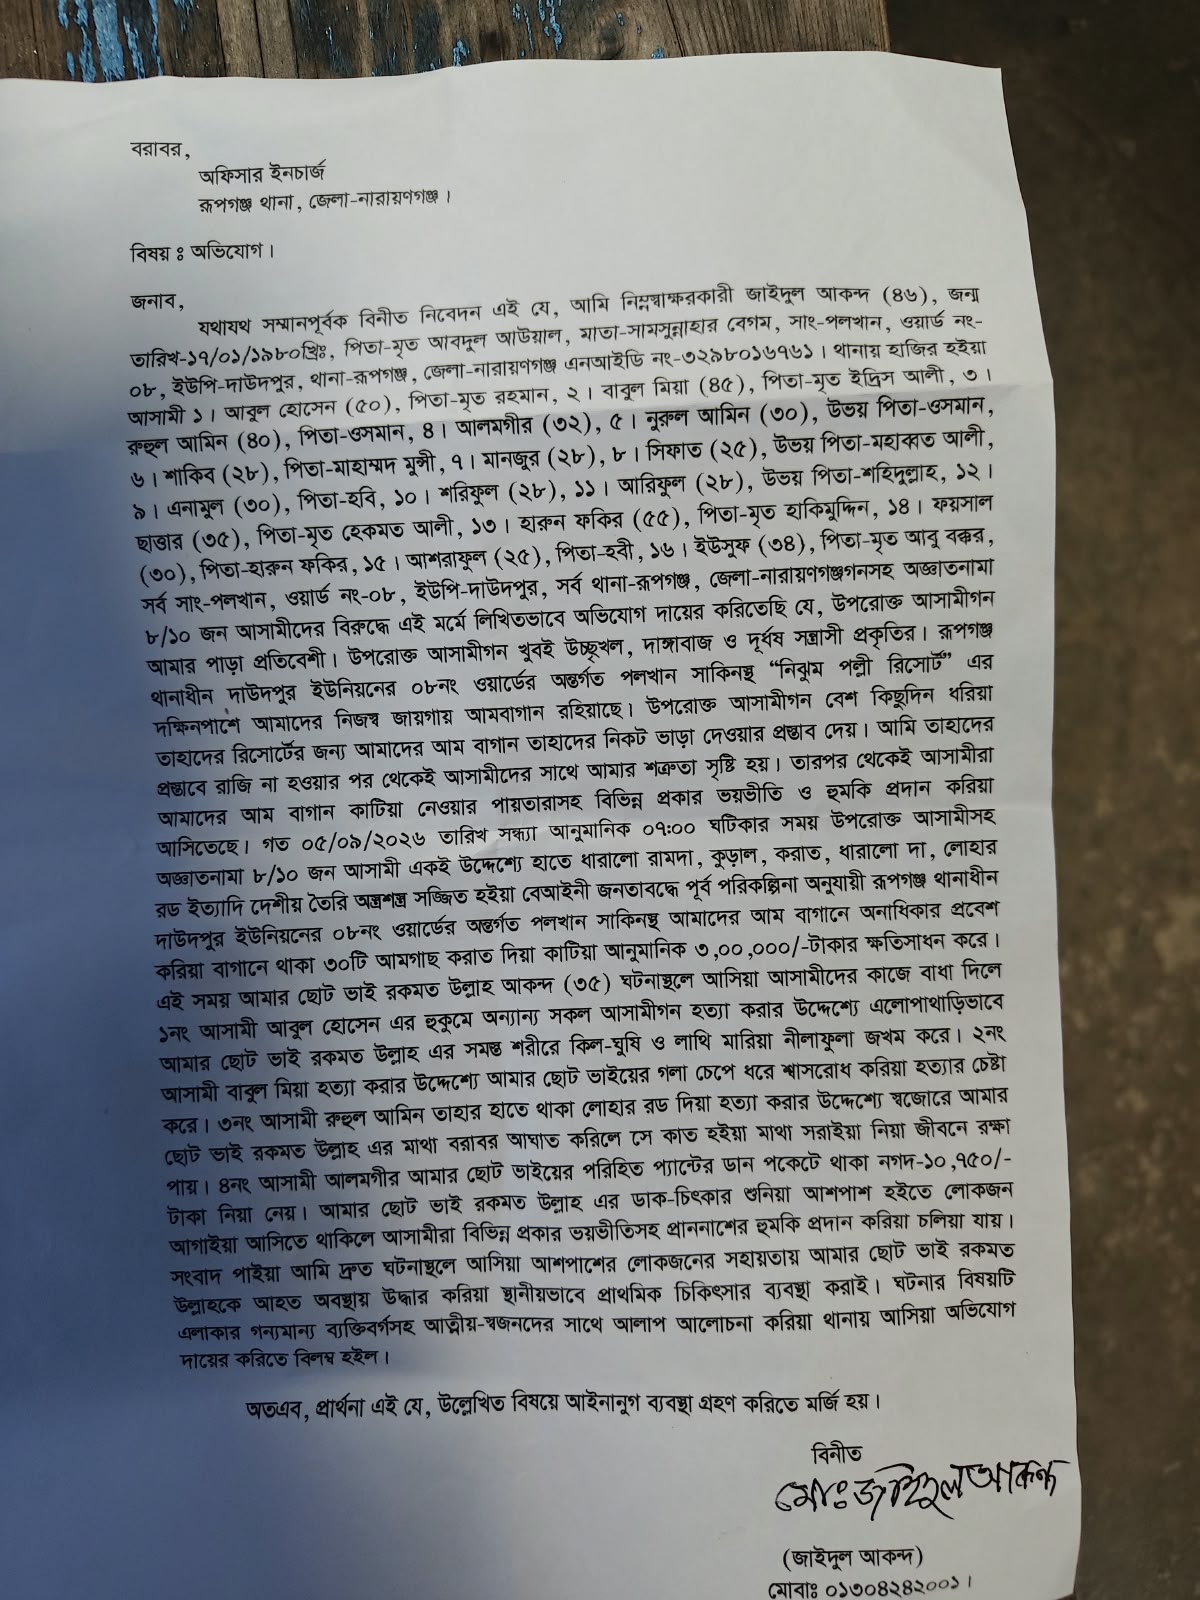 বরাবর,
অফিসার ইনচার্জ
রূপগঞ্জ থানা, জেলা-নারায়ণগঞ্জ।
বিষয় ঃ অভিযোগ।
জনাব,
যথাযথ সম্মানপূর্বক বিনীত নিবেদন এই যে, আমি নিম্নস্বাক্ষরকারী জাইদুল আকন্দ (৪৬), জন্ম
তারিখ-১৭/০১/১৯৮০খ্রিঃ, পিতা-মৃত আবদুল আউয়াল, মাতা-সামসুন্নাহার বেগম, সাং-পলখান, ওয়ার্ড নং-
০৮, ইউপি-দাউদপুর, থানা-রূপগঞ্জ, জেলা-নারায়ণগঞ্জ এনআইডি নং-৩২৯৮০১৬৭৬১। থানায় হাজির হইয়া
আসামী ১। আবুল হোসেন (৫০), পিতা-মৃত রহমান, ২। বাবুল মিয়া (৪৫), পিতা-মৃত ইদ্রিস আলী, ৩।
রুহুল আমিন (৪০), পিতা-ওসমান, ৪। আলমগীর (৩২), ৫। নুরুল আমিন (৩০), উভয় পিতা-ওসমান,
৬। শাকিব (২৮), পিতা-মাহাম্মদ মুন্সী, ৭। মানজুর (২৮), ৮। সিফাত (২৫), উভয় পিতা-মহাব্বত আলী,
৯। এনামুল (৩০), পিতা-হবি, ১০। শরিফুল (২৮), ১১। আরিফুল (২৮), উভয় পিতা-শহিদুল্লাহ, ১২।
ছাত্তার (৩৫), পিতা-মৃত হেকমত আলী, ১৩। হারুন ফকির (৫৫), পিতা-মৃত হাকিমুদ্দিন, ১৪। ফয়সাল
(৩০), পিতা-হারুন ফকির, ১৫। আশরাফুল (২৫), পিতা-হবী, ১৬। ইউসুফ (৩৪), পিতা-মৃত আবু বক্কর,
সর্ব সাং-পলখান, ওয়ার্ড নং-০৮, ইউপি-দাউদপুর, সর্ব থানা-রূপগঞ্জ, জেলা-নারায়ণগঞ্জগনসহ অজ্ঞাতনামা
৮/১০ জন আসামীদের বিরুদ্ধে এই মর্মে লিখিতভাবে অভিযোগ দায়ের করিতেছি যে, উপরোক্ত আসামীগন
আমার পাড়া প্রতিবেশী। উপরোক্ত আসামীগন খুবই উচ্ছৃখল, দাঙ্গাবাজ ও দূর্ধষ সন্ত্রাসী প্রকৃতির। রূপগঞ্জ
থানাধীন দাউদপুর ইউনিয়নের ০৮নং ওয়ার্ডের অন্তর্গত পলখান সাকিনস্থ “নিঝুম পল্লী রিসোর্ট” এর
দক্ষিনপাশে আমাদের নিজস্ব জায়গায় আমবাগান রহিয়াছে। উপরোক্ত আসামীগন বেশ কিছুদিন ধরিয়া
তাহাদের রিসোর্টের জন্য আমাদের আম বাগান তাহাদের নিকট ভাড়া দেওয়ার প্রস্তাব দেয়। আমি তাহাদের
প্রস্তাবে রাজি না হওয়ার পর থেকেই আসামীদের সাথে আমার শত্রুতা সৃষ্টি হয়। তারপর থেকেই আসামীরা
আমাদের আম বাগান কাটিয়া নেওয়ার পায়তারাসহ বিভিন্ন প্রকার ভয়ভীতি ও হুমকি প্রদান করিয়া
আসিতেছে। গত ০৫/০৯/২০২৬ তারিখ সন্ধ্যা আনুমানিক ০৭:০০ ঘটিকার সময় উপরোক্ত আসামীসহ
অজ্ঞাতনামা ৮/১০ জন আসামী একই উদ্দেশ্যে হাতে ধারালো রামদা, কুড়াল, করাত, ধারালো দা, লোহার
রড ইত্যাদি দেশীয় তৈরি অস্ত্রশস্ত্র সজ্জিত হইয়া বেআইনী জনতাবদ্ধে পূর্ব পরিকল্পিনা অনুযায়ী রূপগঞ্জ থানাধীন
দাউদপুর ইউনিয়নের ০৮নং ওয়ার্ডের অন্তর্গত পলখান সাকিনস্থ আমাদের আম বাগানে অনাধিকার প্রবেশ
করিয়া বাগানে থাকা ৩০টি আমগাছ করাত দিয়া কাটিয়া আনুমানিক ৩,০০,০০০/-টাকার ক্ষতিসাধন করে।
এই সময় আমার ছোট ভাই রকমত উল্লাহ আকন্দ (৩৫) ঘটনাস্থলে আসিয়া আসামীদের কাজে বাধা দিলে
১নং আসামী আবুল হোসেন এর হুকুমে অন্যান্য সকল আসামীগন হত্যা করার উদ্দেশ্যে এলোপাথাড়িভাবে
আমার ছোট ভাই রকমত উল্লাহ এর সমস্ত শরীরে কিল-ঘুষি ও লাথি মারিয়া নীলাফুলা জখম করে। ২নং
আসামী বাবুল মিয়া হত্যা করার উদ্দেশ্যে আমার ছোট ভাইয়ের গলা চেপে ধরে শ্বাসরোধ করিয়া হত্যার চেষ্টা
করে। ৩নং আসামী রুহুল আমিন তাহার হাতে থাকা লোহার রড দিয়া হত্যা করার উদ্দেশ্যে স্বজোরে আমার
ছোট ভাই রকমত উল্লাহ এর মাথা বরাবর আঘাত করিলে সে কাত হইয়া মাথা সরাইয়া নিয়া জীবনে রক্ষা
পায়। ৪নং আসামী আলমগীর আমার ছোট ভাইয়ের পরিহিত প্যান্টের ডান পকেটে থাকা নগদ-১০,৭৫০/-
টাকা নিয়া নেয়। আমার ছোট ভাই রকমত উল্লাহ এর ডাক-চিৎকার শুনিয়া আশপাশ হইতে লোকজন
আগাইয়া আসিতে থাকিলে আসামীরা বিভিন্ন প্রকার ভয়ভীতিসহ প্রাননাশের হুমকি প্রদান করিয়া চলিয়া যায়।
সংবাদ পাইয়া আমি দ্রুত ঘটনাস্থলে আসিয়া আশপাশের লোকজনের সহায়তায় আমার ছোট ভাই রকমত
উল্লাহকে আহত অবস্থায় উদ্ধার করিয়া স্থানীয়ভাবে প্রাথমিক চিকিৎসার ব্যবস্থা করাই। ঘটনার বিষয়টি
এলাকার গন্যমান্য ব্যক্তিবর্গসহ আত্মীয়-স্বজনদের সাথে আলাপ আলোচনা করিয়া থানায় আসিয়া অভিযোগ
দায়ের করিতে বিলম্ব হইল।
অতএব, প্রার্থনা এই যে, উল্লেখিত বিষয়ে আইনানুগ ব্যবস্থা গ্রহণ করিতে মর্জি হয়।
বিনীত
মোঃ জাইদুল আকন্দ
(জাইদুল আকন্দ)
মোবাঃ ০১৩০৪২৪২০০১।